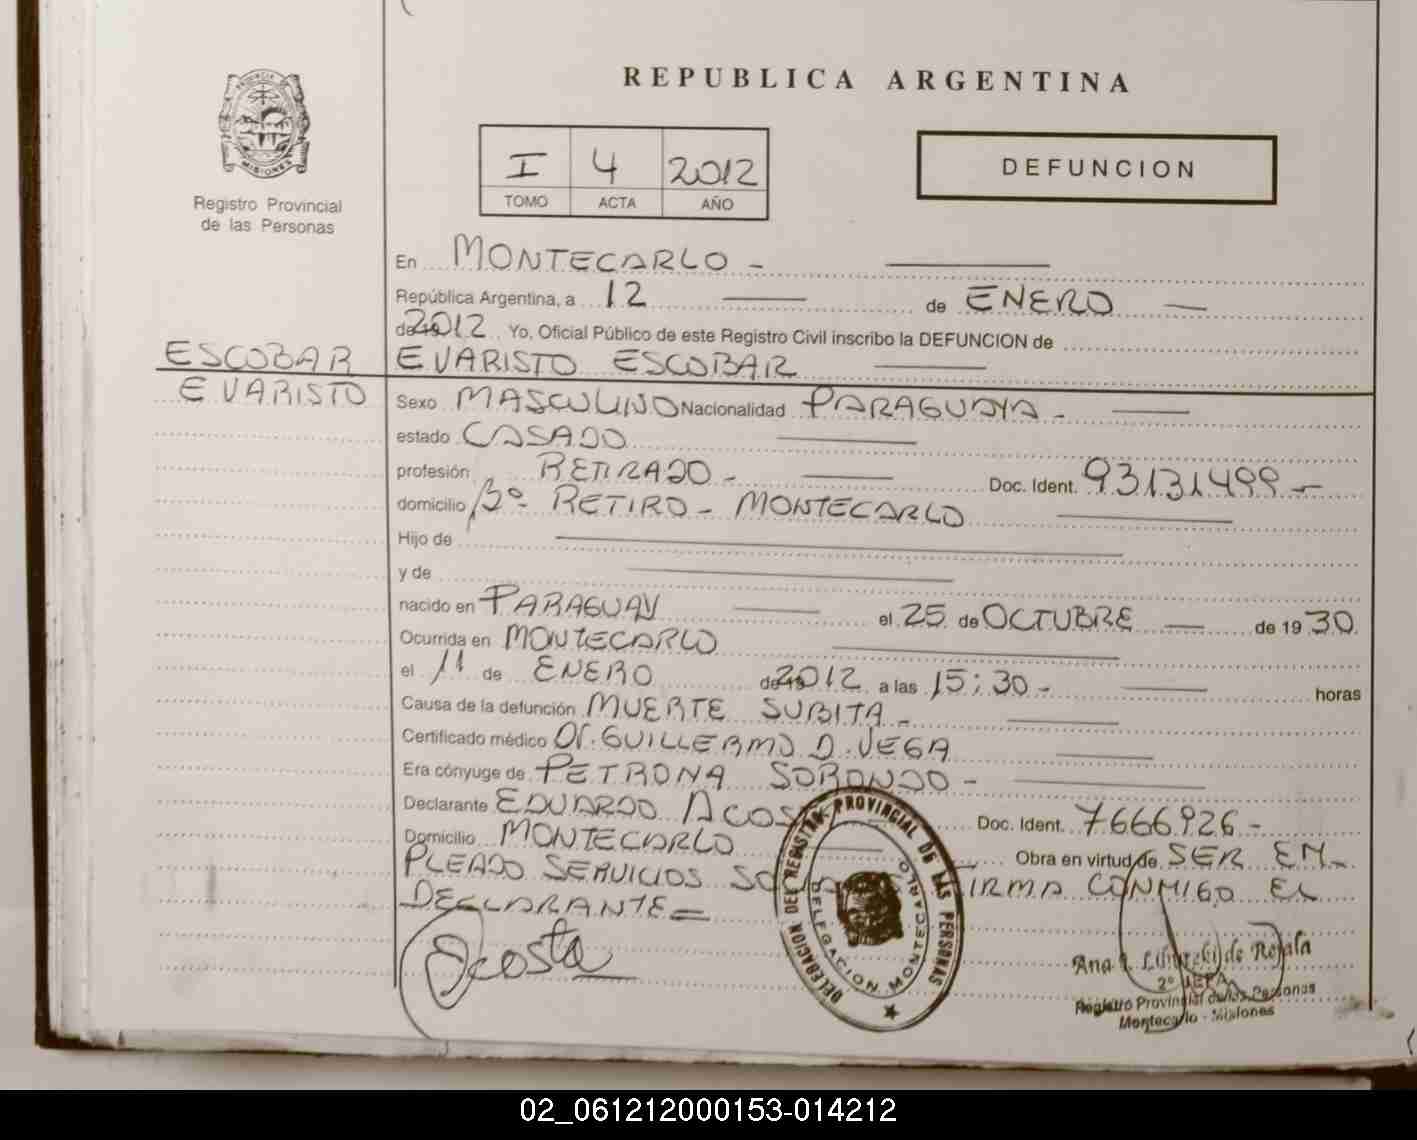 REPUBLICA ARGENTINA
PROVINCIA DE MISIONES
Registro Provincial
de las Personas
I 4 2012
TOMO ACTA AÑO
DEFUNCION
En MONTECARLO -
República Argentina, a 12 de ENERO
de 2012 Yo, Oficial Público de este Registro Civil inscribo la DEFUNCION de
ESCOBAR EVARISTO ESCOBAR
EVARISTO Sexo MASCULINO Nacionalidad PARAGUAYA -
estado CASADO
profesión RETIRADO - Doc. Ident. 93131499 -
domicilio Bº RETIRO - MONTECARLO
Hijo de
y de
nacido en PARAGUAY el 25 de OCTUBRE de 19 30
Ocurrida en MONTECARLO
el 11 de ENERO de 2012 a las 15:30 - horas
Causa de la defunción MUERTE SUBITA -
Certificado médico Dr. GUILLERMO D. VEGA
Era cónyuge de PETRONA SORONDO -
Declarante EDUARDO ACOSTA Doc. Ident. 7666926 -
Domicilio MONTECARLO Obra en virtud de SER EM-
PLEADO SERVICIOS FIRMA CONMIGO EL
DECLARANTE =
Acosta
DELEGACION DEL REGISTRO PROVINCIAL DE LAS PERSONAS
DELEGACION MONTECARLO
Ana de Rejala
2º JEFA
Registro Provincial de las Personas
Montecarlo - Misiones
02_061212000153-014212